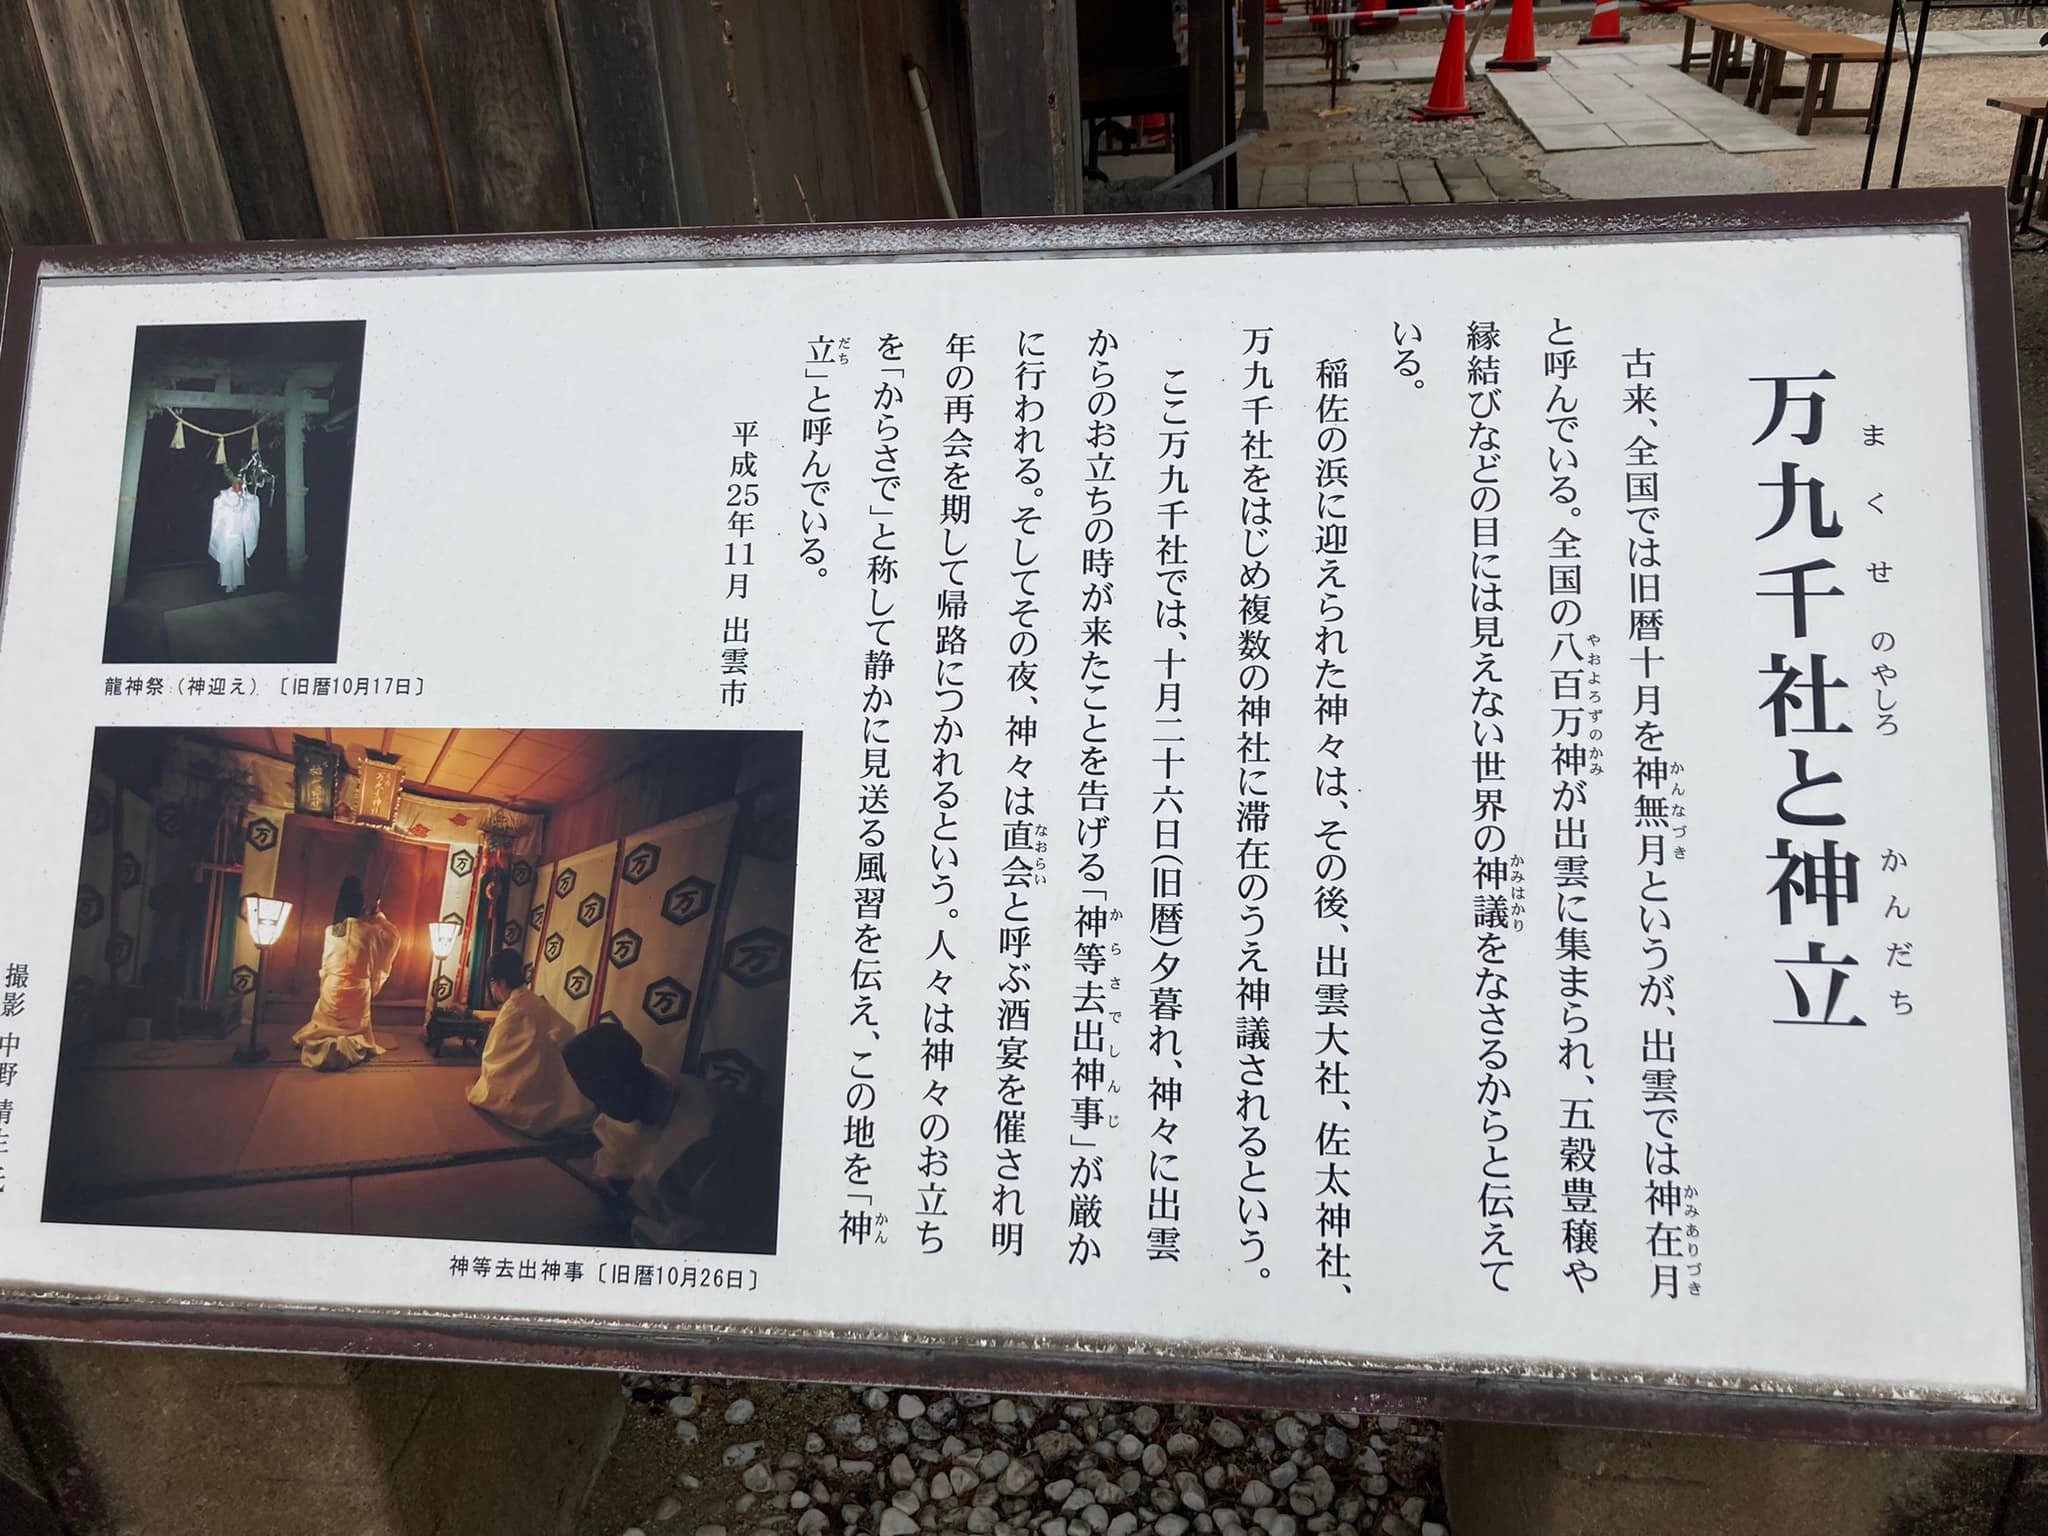 万九千社と神立
まくせのやしろ かんだち
古来、全国では旧暦十月を神無月というが、出雲では神在月
かんなづき かみありづき
と呼んでいる。全国の八百万神が出雲に集まられ、五穀豊穣や
やおよろずのかみ
縁結びなどの目には見えない世界の神議をなさるからと伝えて
かみはかり
いる。
稲佐の浜に迎えられた神々は、その後、出雲大社、佐太神社、
万九千社をはじめ複数の神社に滞在のうえ神議されるという。
ここ万九千社では、十月二十六日(旧暦)夕暮れ、神々に出雲
からのお立ちの時が来たことを告げる「神等去出神事」が厳か
からさでしんじ
に行われる。そしてその夜、神々は直会と呼ぶ酒宴を催され明
なおらい
年の再会を期して帰路につかれるという。人々は神々のお立ち
を「からさで」と称して静かに見送る風習を伝え、この地を「神
かん
立」と呼んでいる。
だち
平成25年11月 出雲市
龍神祭(神迎え)〔旧暦10月17日〕
万
万
万
万
万
万
万
万
万
神等去出神事〔旧暦10月26日〕
撮影 中野